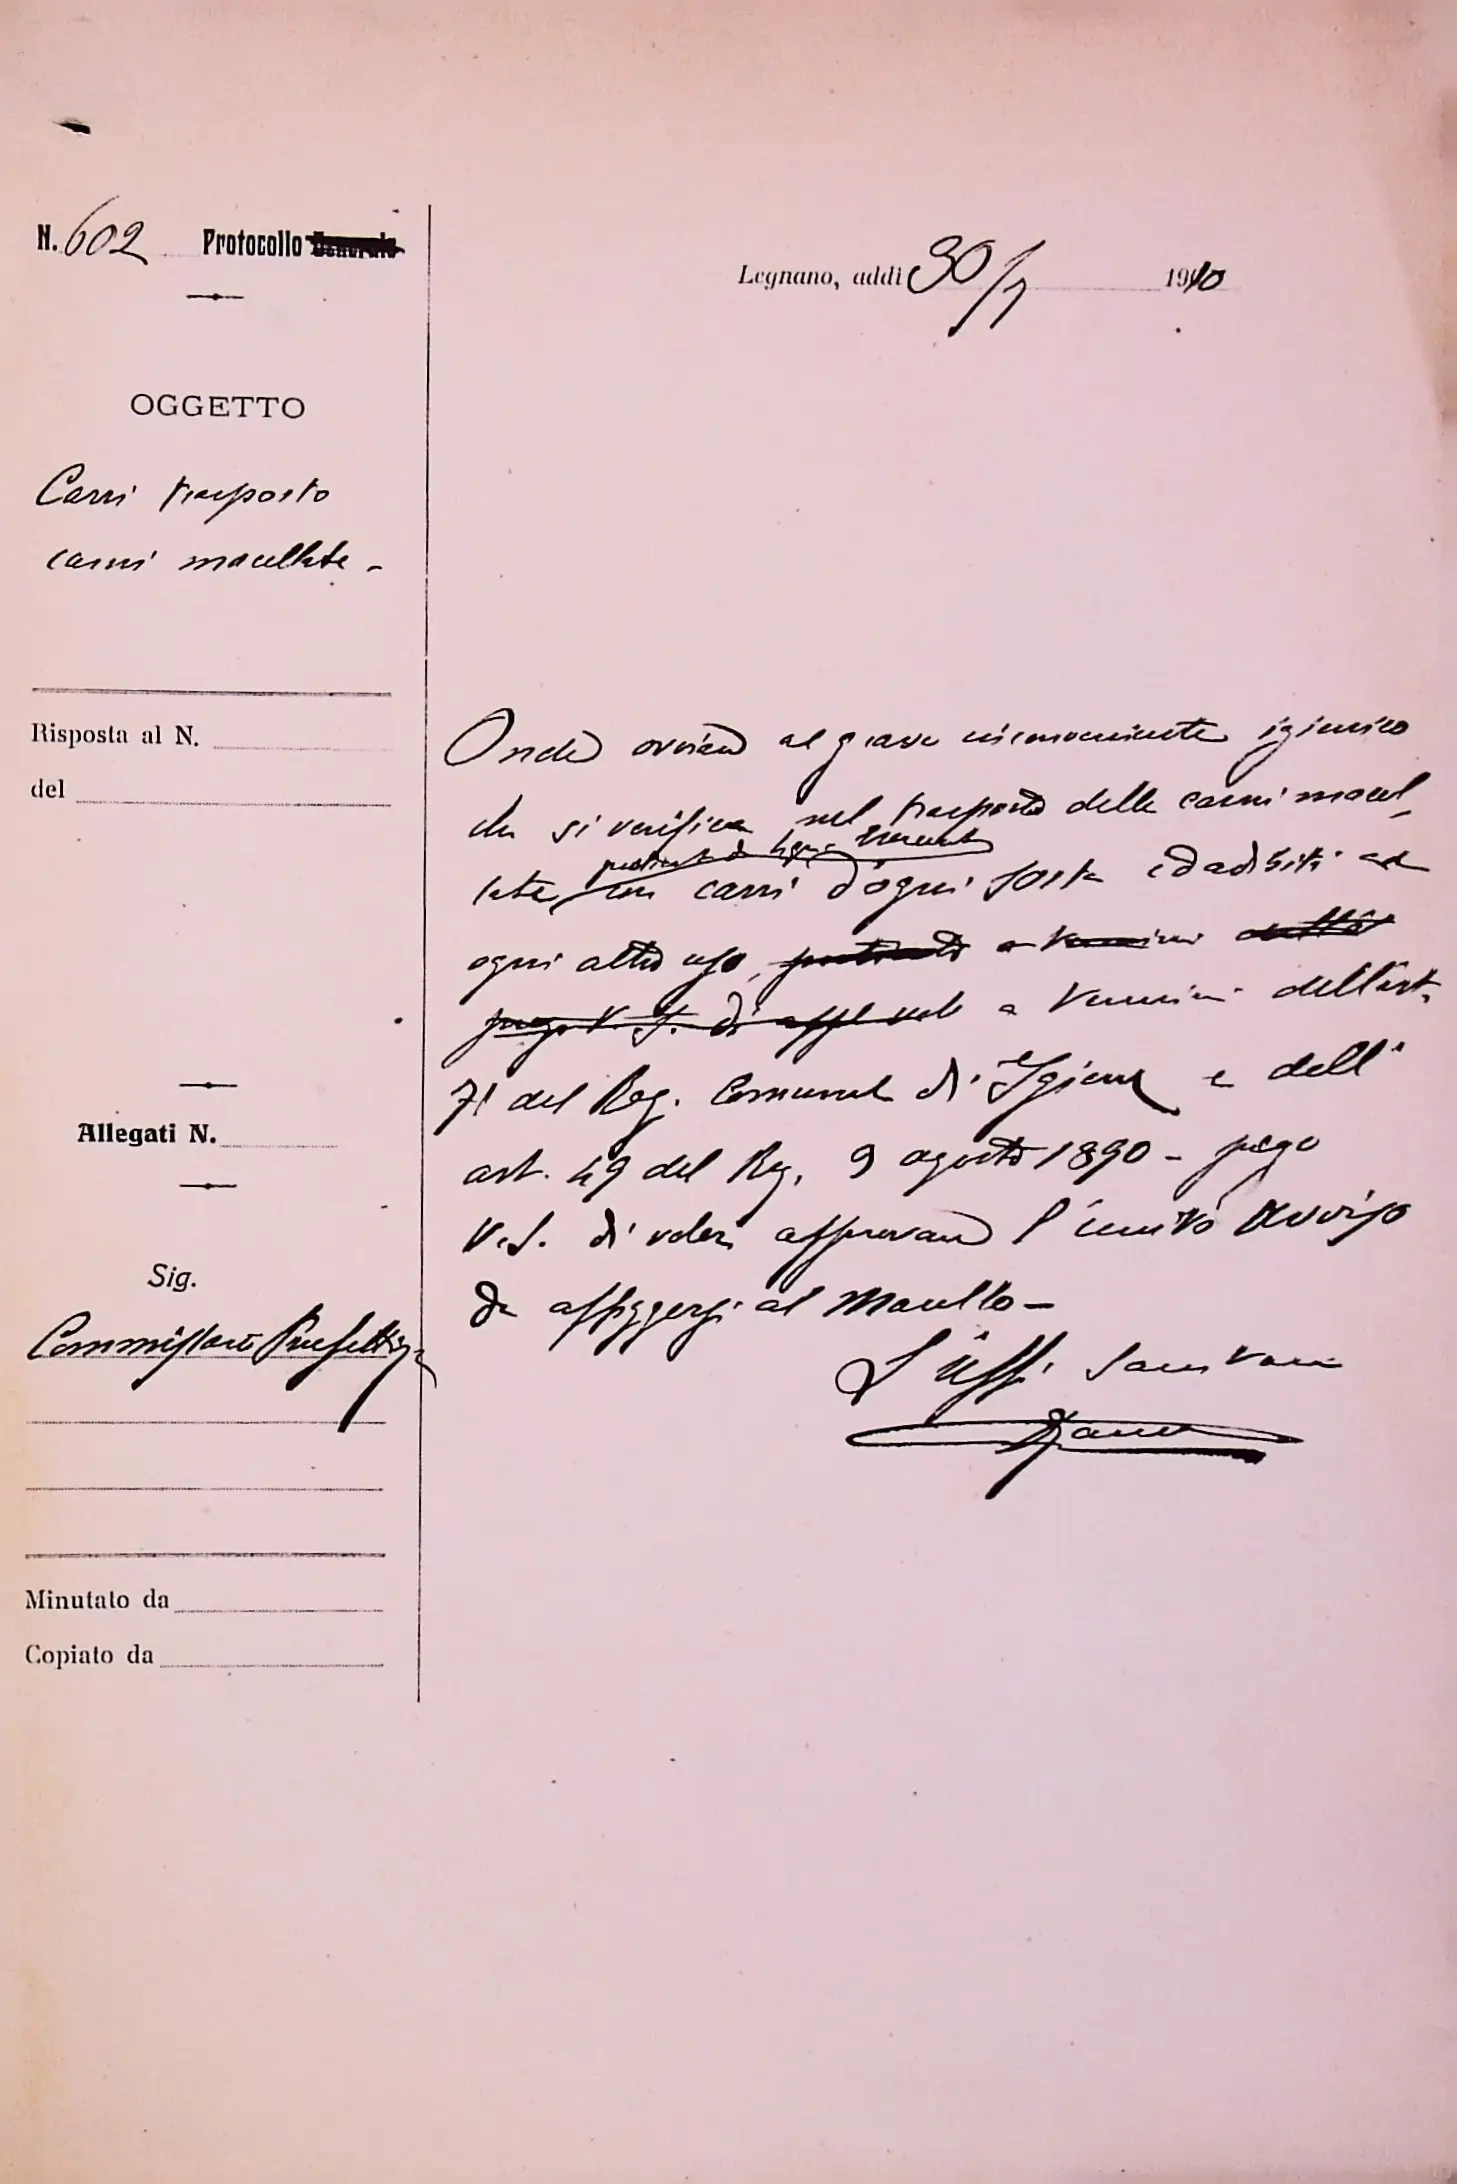 N. 602 Protocollo Generale
Legnano, addì 30/7 1910
OGGETTO
Carri trasporto
carni macellate -
Risposta al N.
del
Allegati N.
Sig.
Commissario Prefettizio
Minutato da
Copiato da
Onde ovviare al grave inconveniente igienico
che si verifica nel trasporto delle carni macel,
late, con carri d'ogni sorta ed adibiti ad
ogni altro uso, a termini
prego V. S. di a termini dell'art.
71 del Reg. Comunale di Igiene e dell'
art. 49 del Reg. 9 agosto 1890 - prego
V.S. di voler approvare l'unito Avviso
da affiggersi al Macello -
L'Uff. Sanitario